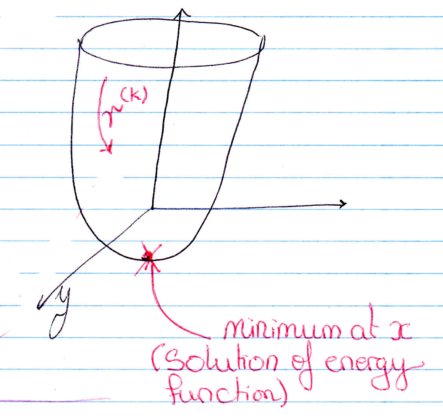 r^(k)
y
minimum at x
(solution of energy
function)